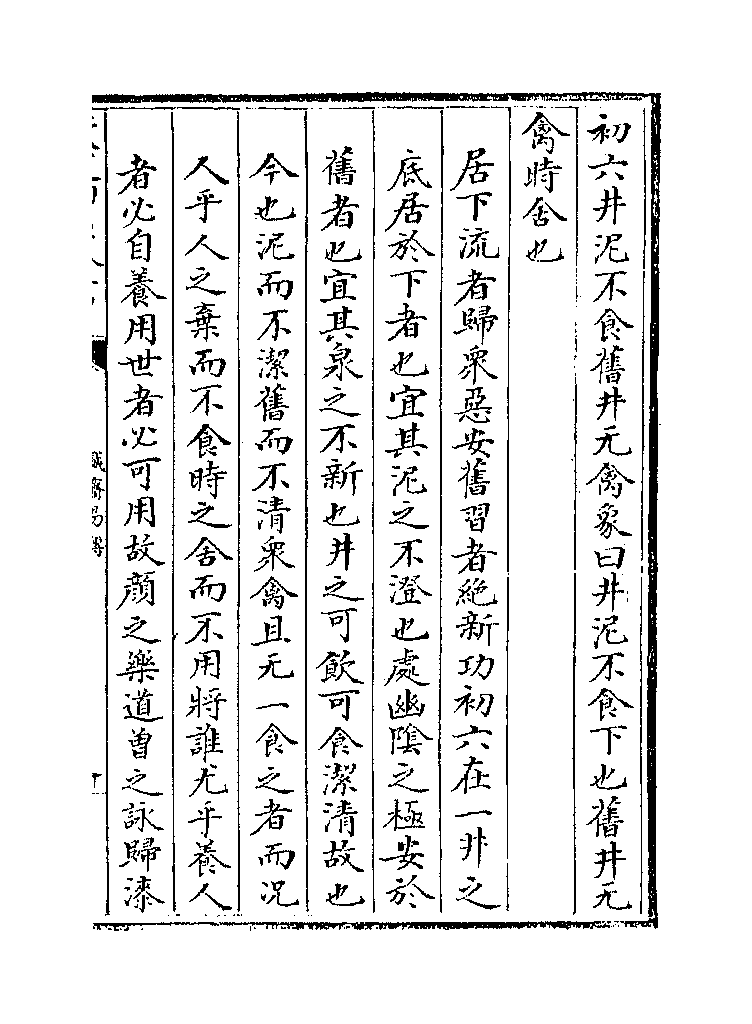 初六井泥不食舊井无禽象曰井泥不食下也舊井无
禽時舍也
居下流者歸衆惡安舊習者絶新功初六在一井之
底居於下者也宜其泥之不澄也處幽陰之極安於
舊者也宜其泉之不新也井之可飲可食潔清故也
今也泥而不潔舊而不清衆禽且无一食之者而况
人乎人之棄而不食時之舍而不用將誰尤乎養人
者必自養用世者必可用故顔之樂道曽之詠歸漆
誠齋易傳